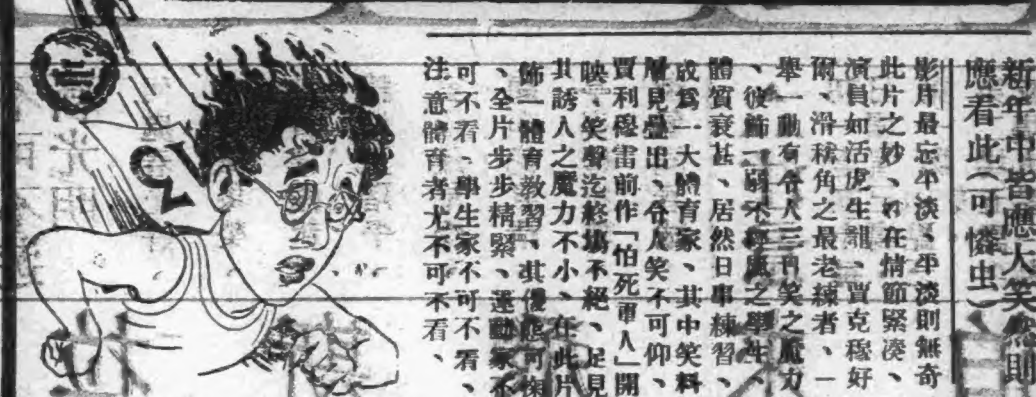 新年中皆應大笑然則
應看此(可憐虫)
影片最忌平淡、平淡則無奇
此片之妙、好在情節緊湊、
演員如活虎生龍、賈克穆好
爾、滑稽角之最老練者、一
舉一動有令人三日笑之魔力
、彼飾一弱不經風之學生、
體質衰甚、居然日事練習、
成爲一大體育家、其中笑料
層見疊出、令人笑不可仰、
賈利穆雷前作「怕死軍人」開
映、笑聲迄終塲不絕、足見
其誘人之魔力不小、在此片
飾一體育教習、其優態可掬
、全片步步精緊、運動家不
可不看、學生家不可不看、
注意體育者尤不可不看、